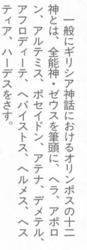 一般にギリシア神話におけるオリンポスの十二
神とは、全能神・ゼウスを筆頭に、ヘラ、アポロ
ン、アルテミス、ポセイドン、アテナ、デメテル、
アフロディーテ、ヘパイストス、ヘルメス、ヘス
ティア、ハーデスをさす。